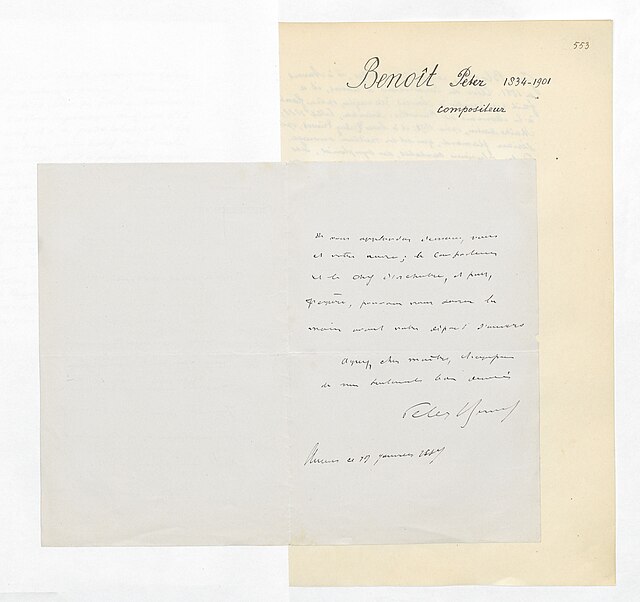 553
Benoît Peter 1834-1901
compositeur
de vous applaudir demain, vous
et votre œuvre; le compositeur
et le chef d'orchestre, et puis,
j'espère, pouvoir vous serrer la
main avant votre départ d'Anvers
Agréez, cher maître, l'
de mes sentiments bien
Peter Benoit
Anvers ce janvier